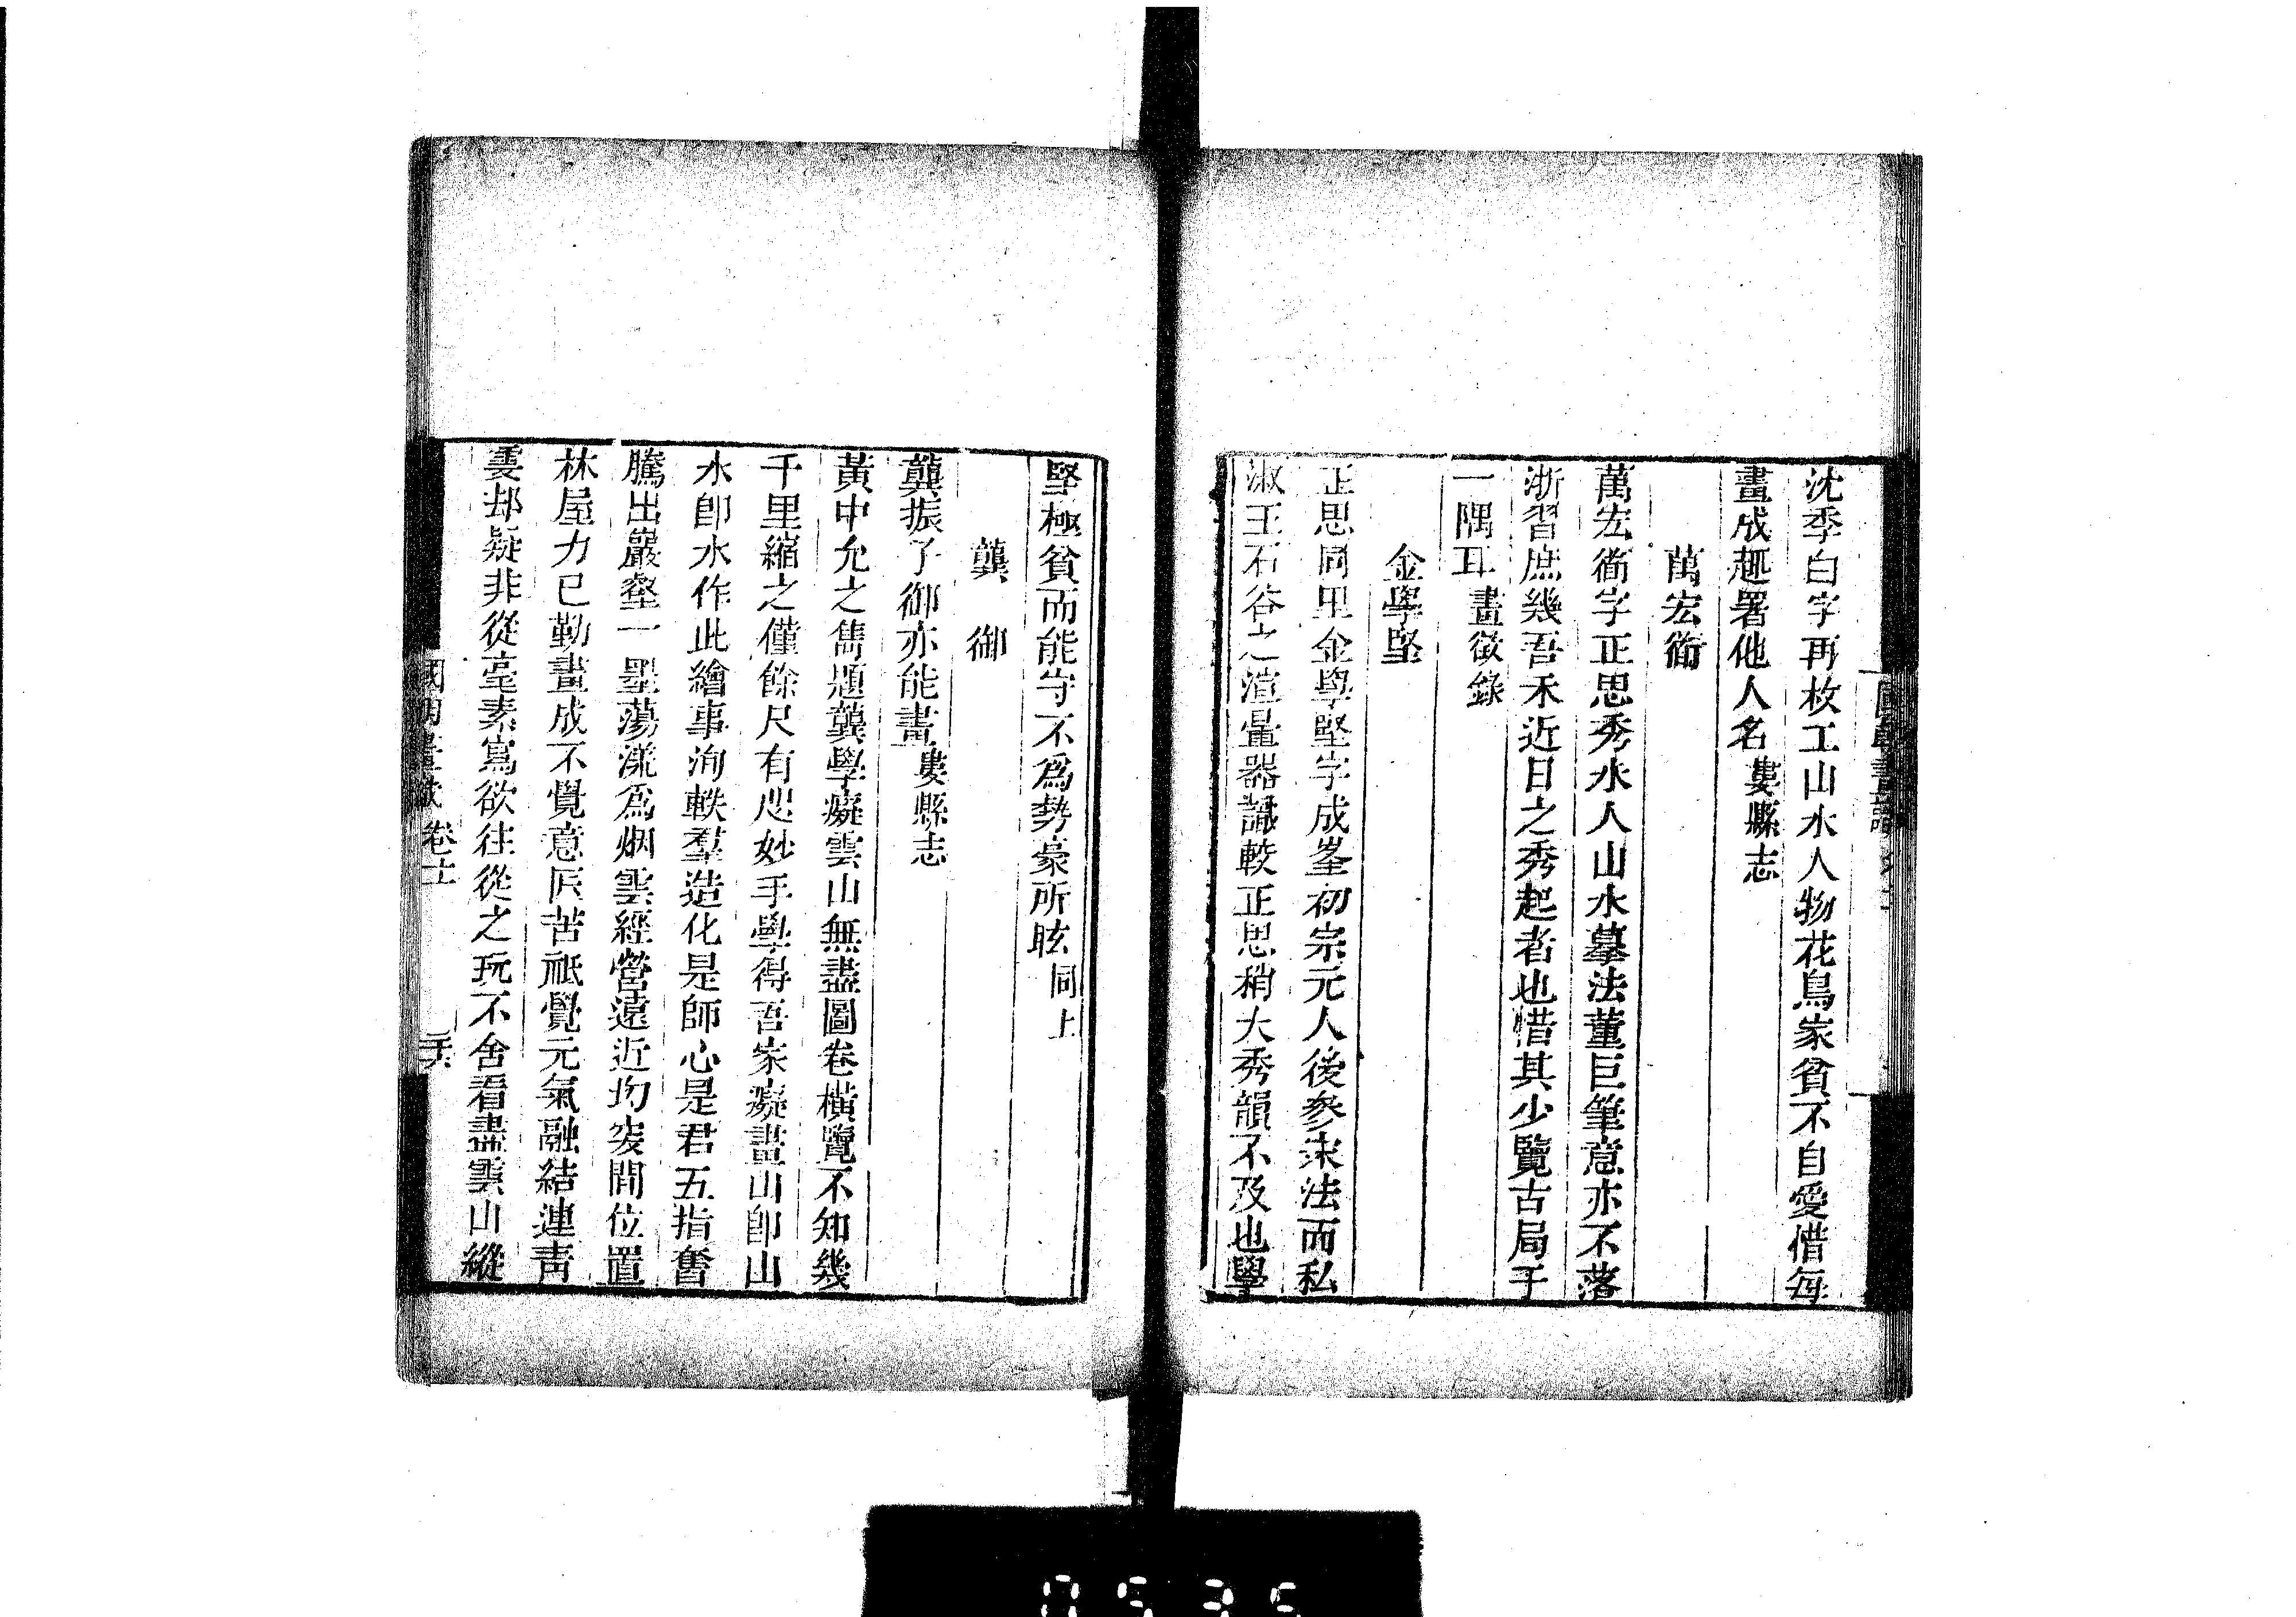 沈季白字再枚工山水人物花鳥家貧不自愛惜每
畫成趣署他人名婁縣志
萬宏衜
萬宏衜字正思秀水人山水摹法董巨筆意亦不落
浙習庶幾吾禾近日之秀起者也惜其少覽古局于
一隅耳畫徵錄
金學堅
正思同里金學堅字成峯初宗元人後參宋法而私
淑王石谷之渲暈器識較正思稍大秀韻不及也學
堅極貧而能守不爲勢豪所眩同上
龔御
龔振子御亦能畫婁縣志
黃中允之雋題龔學癡雲山無盡圖卷橫覽不知幾
千里縮之僅餘尺有咫妙手學得吾家癡畫山卽山
水卽水作此繪事洵軼羣造化是師心是君五指奮
騰出巖壑一墨蕩漾爲烟雲經營遠近均窔間位置
林屋力已勤畫成不覺意匠苦祇覺元氣融結連靑
雯却疑非從毫素寫欲往從之玩不舍看盡雲山縱
國朝畫徵 卷十二 二十六
0535